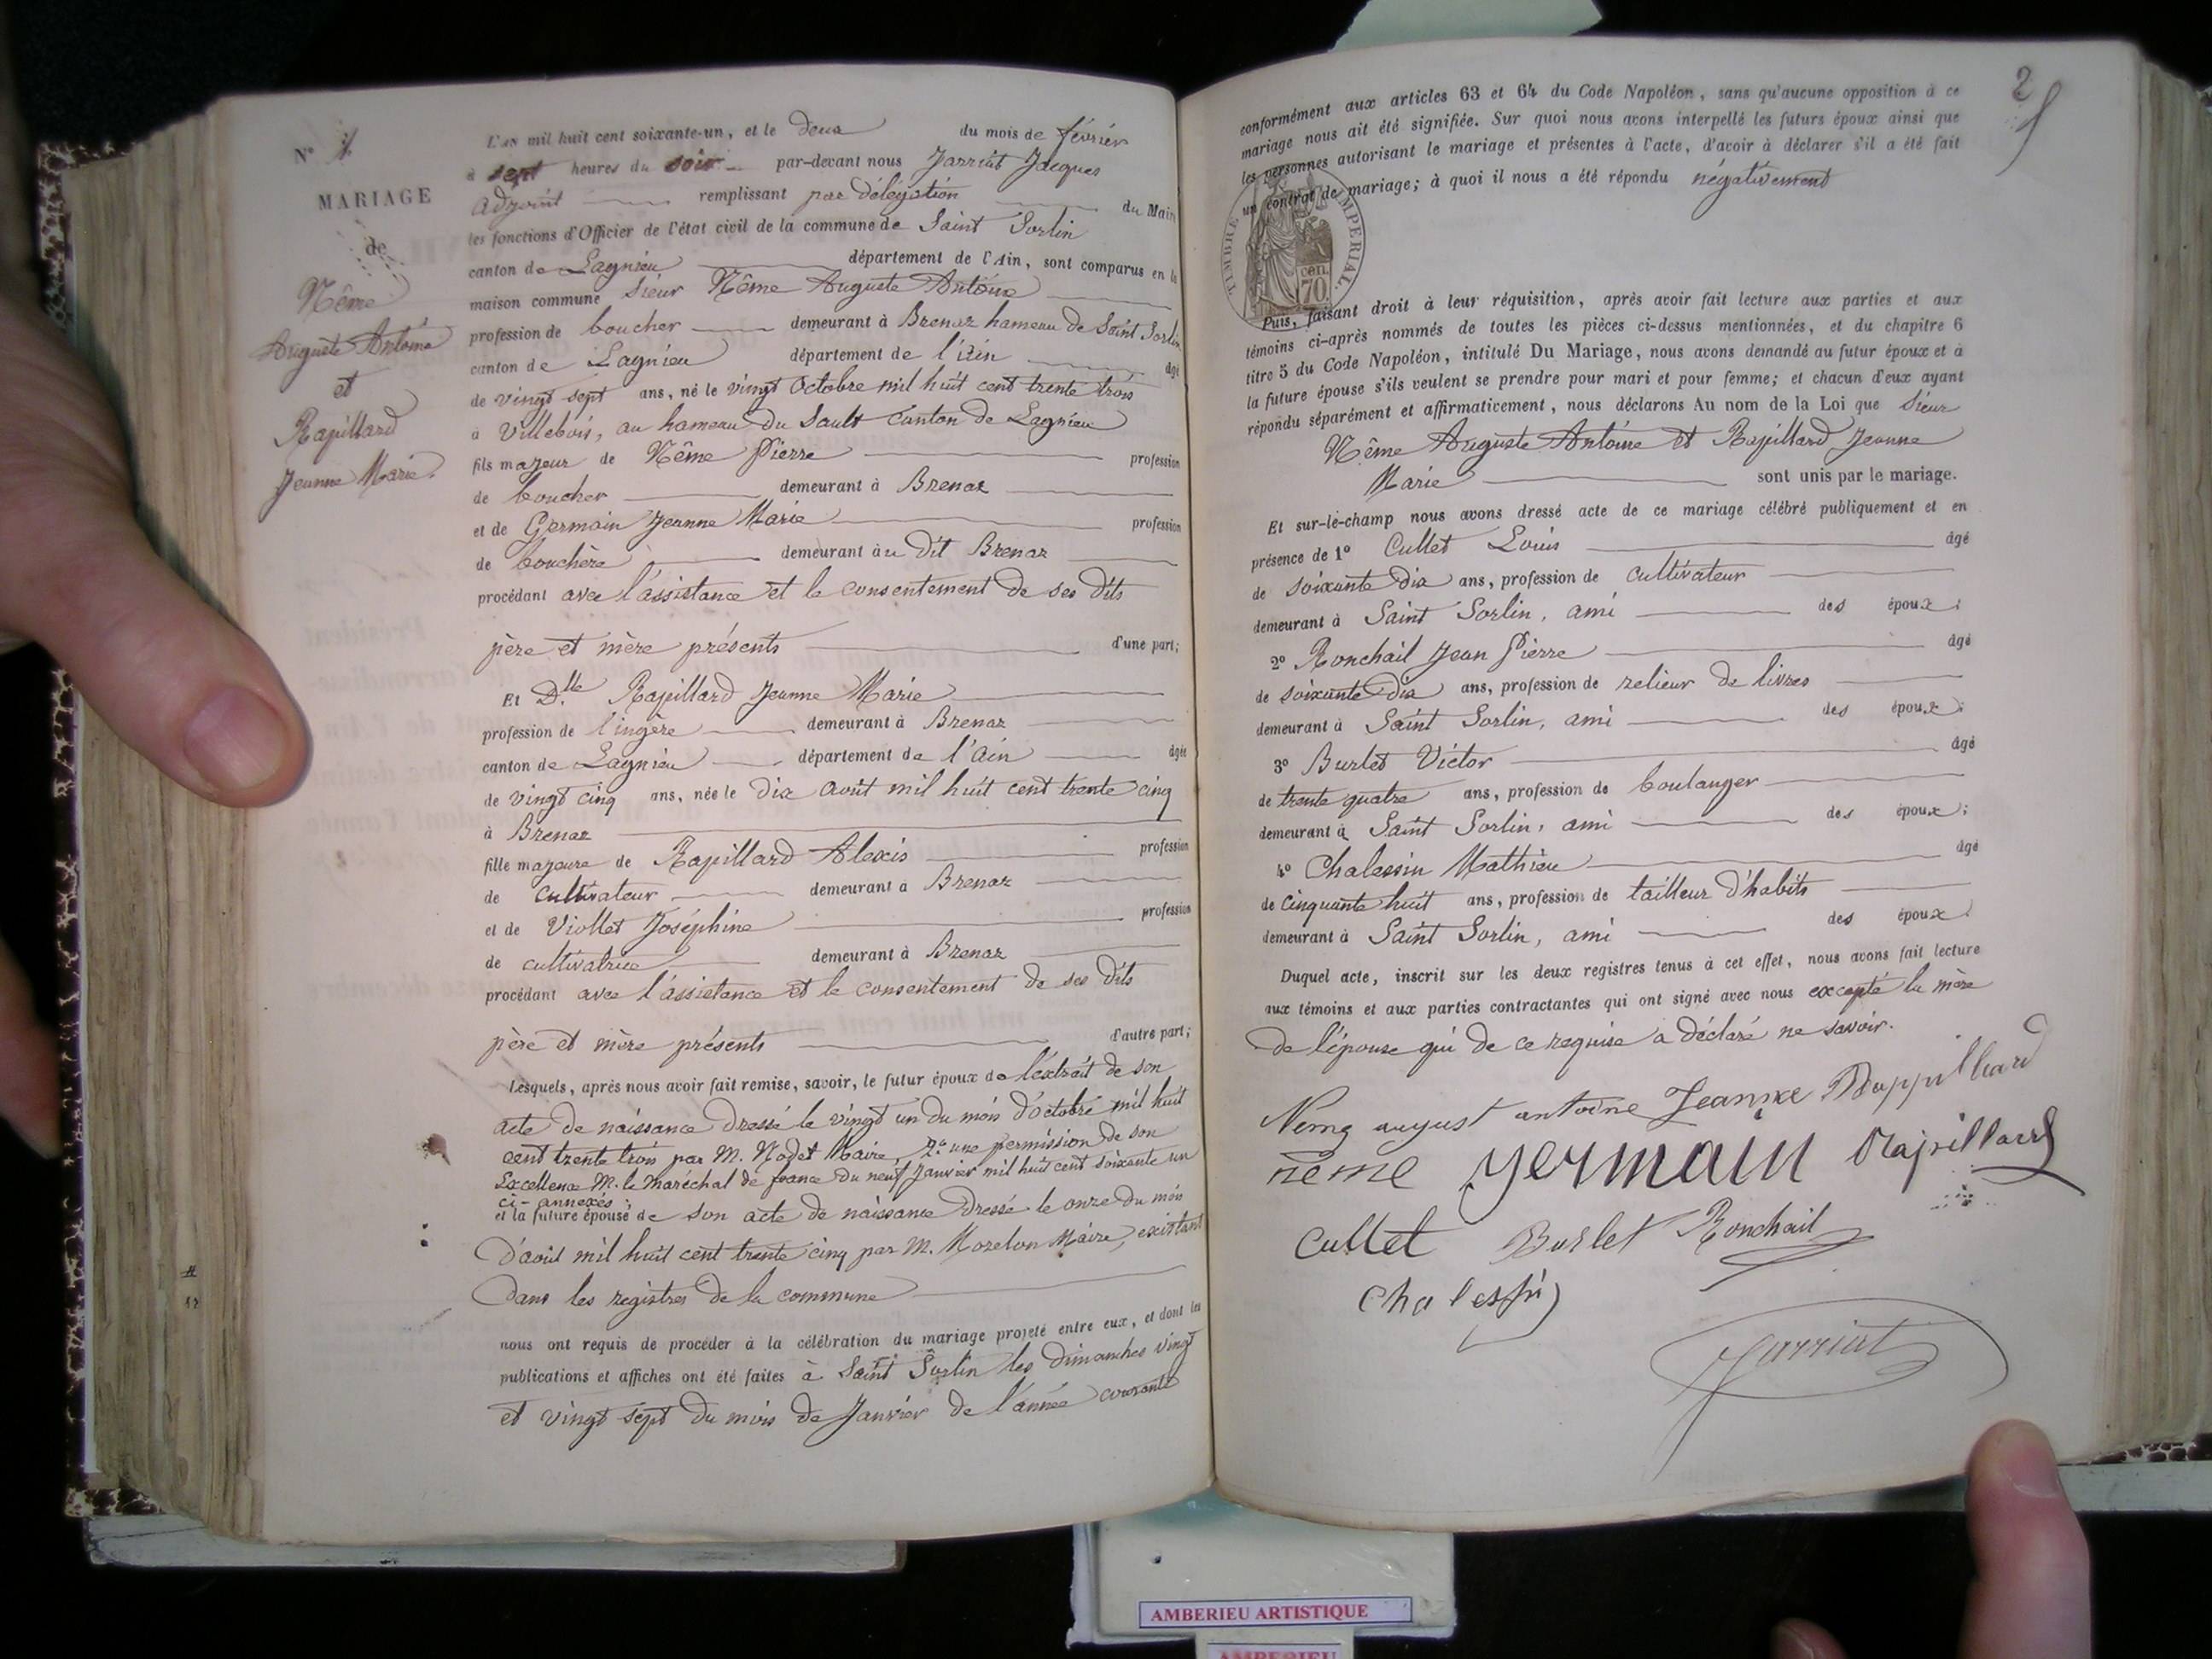 N° 1
MARIAGE
de
Nême
Auguste Antoine
et
Rapillard
Jeanne Marie.
L'an mil huit cent soixante-un, et le deux du mois de février
à sept heures du soir par-devant nous Jarriat Jacques
adjoint remplissant par délégation du Maire
les fonctions d'Officier de l'état civil de la commune de Saint Sorlin
canton de Lagnieu département de l'Ain, sont comparus en la
maison commune Sieur Nême Auguste Antoine
profession de boucher demeurant à Brenaz hameau de Saint Sorlin
canton de Lagnieu département de l'Ain âgé
de vingt sept ans, né le vingt Octobre mil huit cent trente trois
à Villebois, au hameau du Sault Canton de Lagnieu
fils majeur de Nême Pierre profession
de boucher demeurant à Brenaz
et de Germain Jeanne Marie profession
de bouchère demeurant au dit Brenaz
procédant avec l'assistance et le consentement de ses dits
père et mère présents d'une part;
Et Dlle Rapillard Jeanne Marie
profession de lingère demeurant à Brenaz
canton de Lagnieu département de l'Ain âgée
de vingt cinq ans, née le dix août mil huit cent trente cinq
à Brenaz
fille majeure de Rapillard Alexis profession
de cultivateur demeurant à Brenaz
et de Viollet Joséphine profession
de cultivatrice demeurant à Brenaz
procédant avec l'assistance et le consentement de ses dits
père et mère présents d'autre part;
Lesquels, après nous avoir fait remise, savoir, le futur époux de l'extrait de son
acte de naissance dressé le vingt un du mois d'octobre mil huit
cent trente trois par M. Nodet Maire, 2° une permission de son
Excellence M. le Maréchal de france du neuf Janvier mil huit cent soixante un
ci-annexés;
et la future épouse de son acte de naissance dressé le onze du mois
d'août mil huit cent trente cinq par M. Morelon Maire, existant
dans les registres de la commune
nous ont requis de procéder à la célébration du mariage projeté entre eux, et dont les
publications et affiches ont été faites à Saint Sorlin les dimanches vingt
et vingt sept du mois de Janvier de l'année courante
2
conformément aux articles 63 et 64 du Code Napoléon, sans qu'aucune opposition à ce
mariage nous ait été signifiée. Sur quoi nous avons interpellé les futurs époux ainsi que
les personnes autorisant le mariage et présentes à l'acte, d'avoir à déclarer s'il a été fait
un contrat de mariage; à quoi il nous a été répondu négativement
TIMBRE IMPERIAL.
cen.
70.
Puis, faisant droit à leur réquisition, après avoir fait lecture aux parties et aux
témoins ci-après nommés de toutes les pièces ci-dessus mentionnées, et du chapitre 6
titre 5 du Code Napoléon, intitulé Du Mariage, nous avons demandé au futur époux et à
la future épouse s'ils veulent se prendre pour mari et pour femme; et chacun d'eux ayant
répondu séparément et affirmativement, nous déclarons Au nom de la Loi que Sieur
Nême Auguste Antoine et Rapillard Jeanne
Marie sont unis par le mariage.
Et sur-le-champ nous avons dressé acte de ce mariage célébré publiquement et en
présence de 1° Cullet Louis âgé
de soixante dix ans, profession de cultivateur
demeurant à Saint Sorlin, ami des époux;
2° Ronchail Jean Pierre âgé
de soixante dix ans, profession de relieur de livres
demeurant à Saint Sorlin, ami des époux;
3° Burlet Victor âgé
de trente quatre ans, profession de boulanger
demeurant à Saint Sorlin, ami des époux;
4° Chalessin Mathieu âgé
de cinquante huit ans, profession de tailleur d'habits
demeurant à Saint Sorlin, ami des époux.
Duquel acte, inscrit sur les deux registres tenus à cet effet, nous avons fait lecture
aux témoins et aux parties contractantes qui ont signé avec nous excepté la mère
de l'épouse qui de ce requise a déclaré ne savoir.
Neme august antoine Jeanne Rappillard
neme germain Rapillard
Cullet Burlet Ronchail
Chalessin
Jarriat
AMBERIEU ARTISTIQUE
AMBERIEU